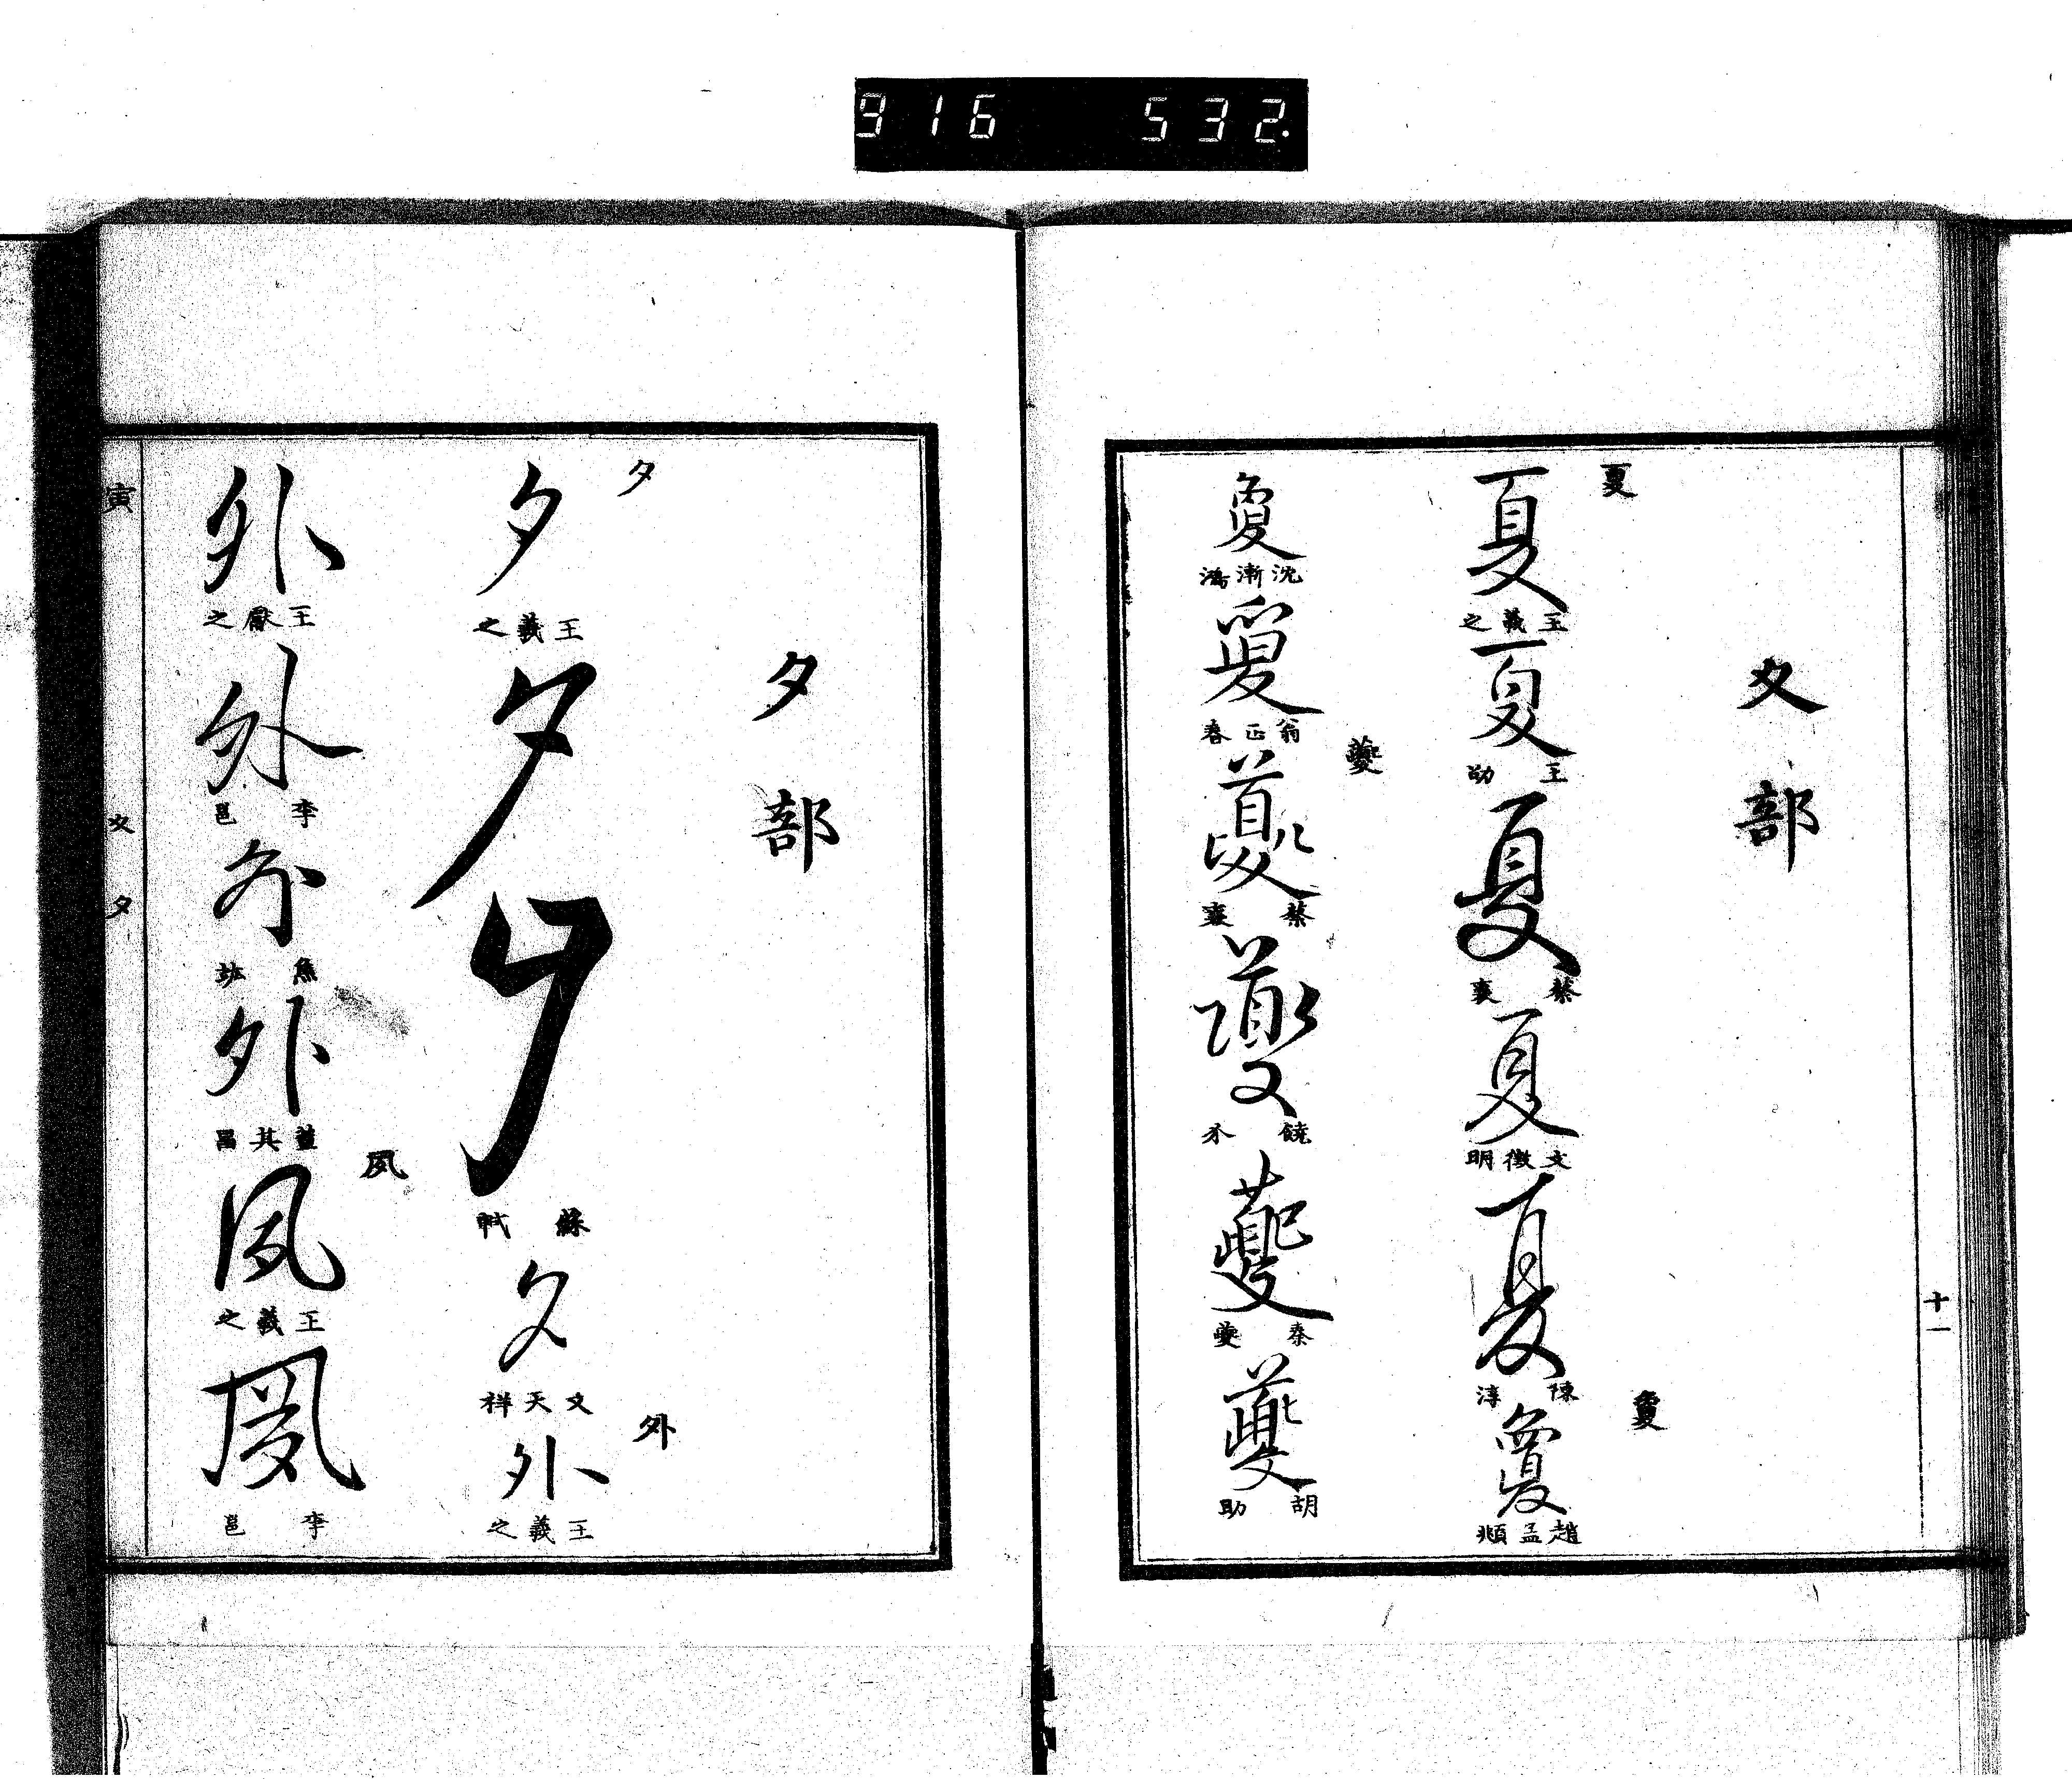 916 532.
十一
夊部
夏
夏
王羲之
夏
王劭
夏
蔡襄
夏
文徵明
夏
陳淳
敻
敻
趙孟頫
敻
沈漸鴻
敻
翁正春
夔
夔
蔡襄
夔
饒介
夔
秦夔
夔
胡助
夕部
夕
夕
王羲之
夕
夕
蘇軾
夕
文天祥
外
外
王羲之
外
王獻之
外
李邕
外
焦竑
外
董其昌
夙
夙
王羲之
夙
李邕
寅
夊
夕